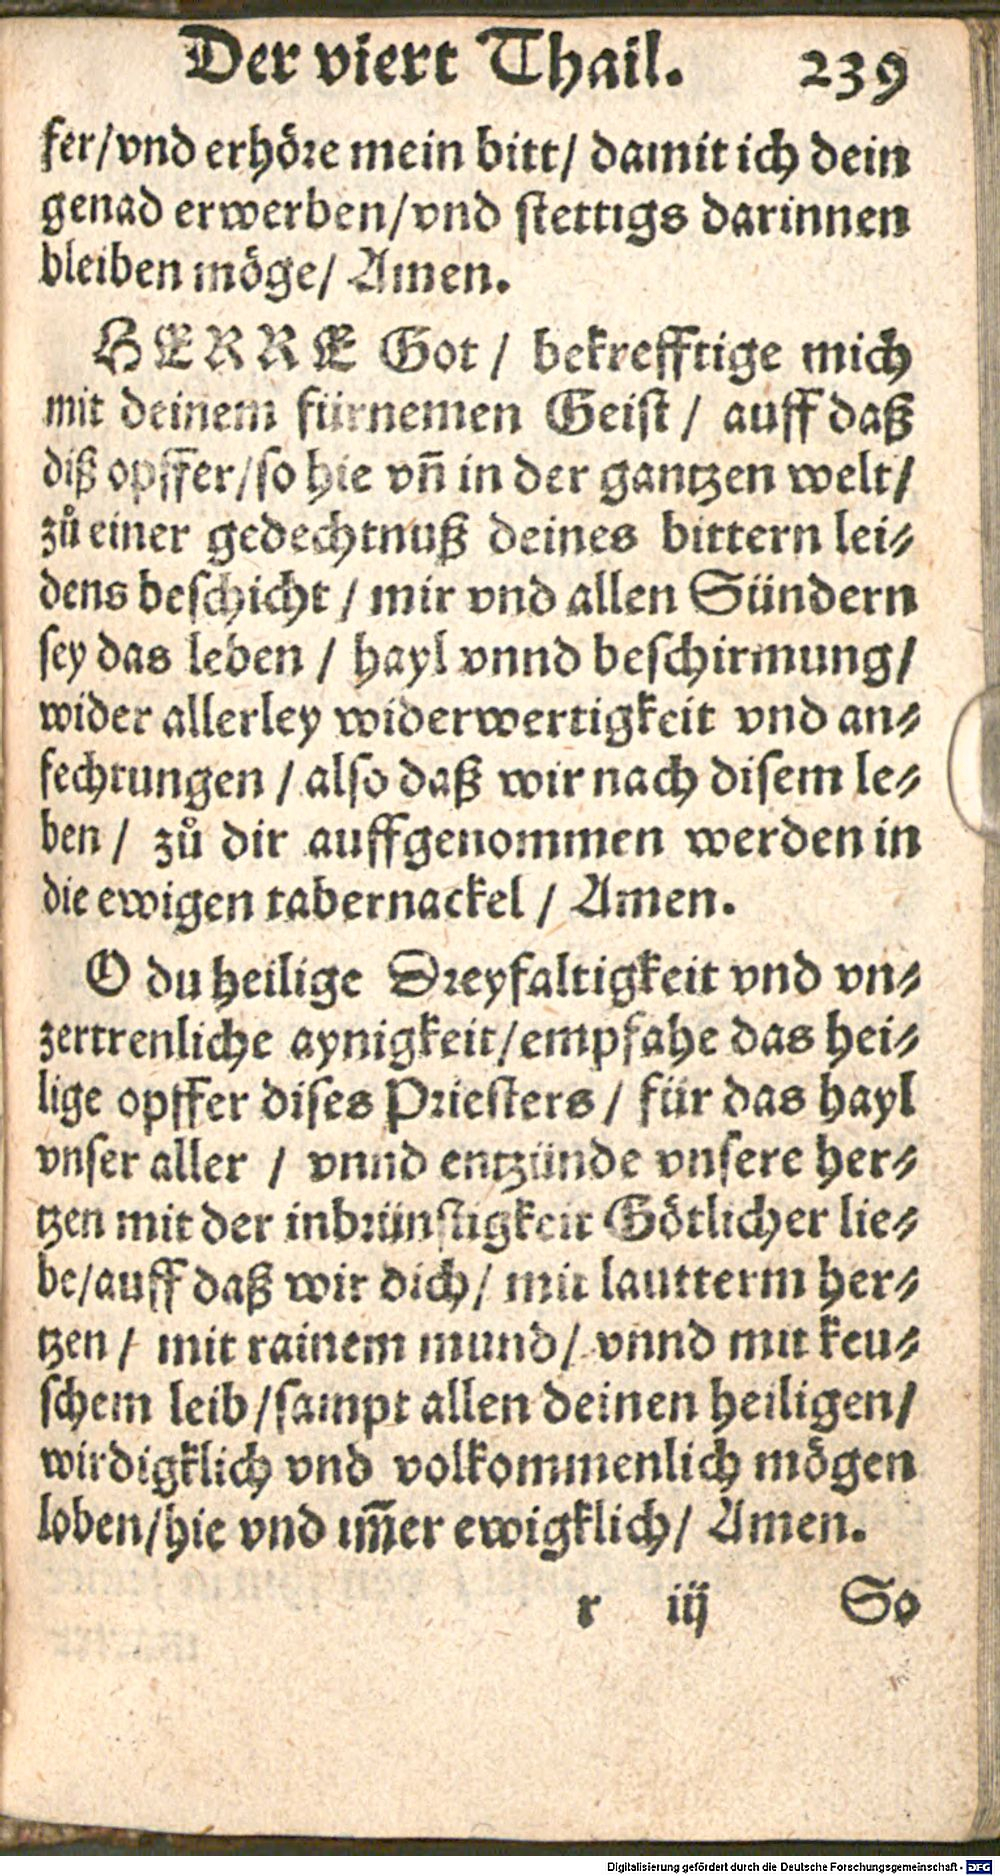 Der viert Thail. 239
fer/vnd erhöre mein bitt/ damit ich dein
genad erwerben/vnd stettigs darinnen
bleiben möge/ Amen.
HERRE Got / bekrefftige mich
mit deinem fürnemen Geist / auff daß
diß opffer/so hie vn̄ in der gantzen welt/
zů einer gedechtnuß deines bittern lei⸗
dens beschicht / mir vnd allen Sündern
sey das leben / hayl vnnd beschirmung/
wider allerley widerwertigkeit vnd an⸗
fechtungen / also daß wir nach disem le⸗
ben / zů dir auffgenommen werden in
die ewigen tabernackel / Amen.
O du heilige Dreyfaltigkeit vnd vn⸗
zertrenliche aynigkeit/empfahe das hei⸗
lige opffer dises Priesters / für das hayl
vnser aller / vnnd entzünde vnsere her⸗
tzen mit der inbrünstigkeit Götlicher lie⸗
be/auff daß wir dich/ mit lautterm her⸗
tzen / mit rainem mund/ vnnd mit keu⸗
schem leib/sampt allen deinen heiligen/
wirdigklich vnd volkommenlich mögen
loben/hie vnd im̅er ewigklich/ Amen.
r iij So
Digitalisierung gefördert durch die Deutsche Forschungsgemeinschaft - DFG